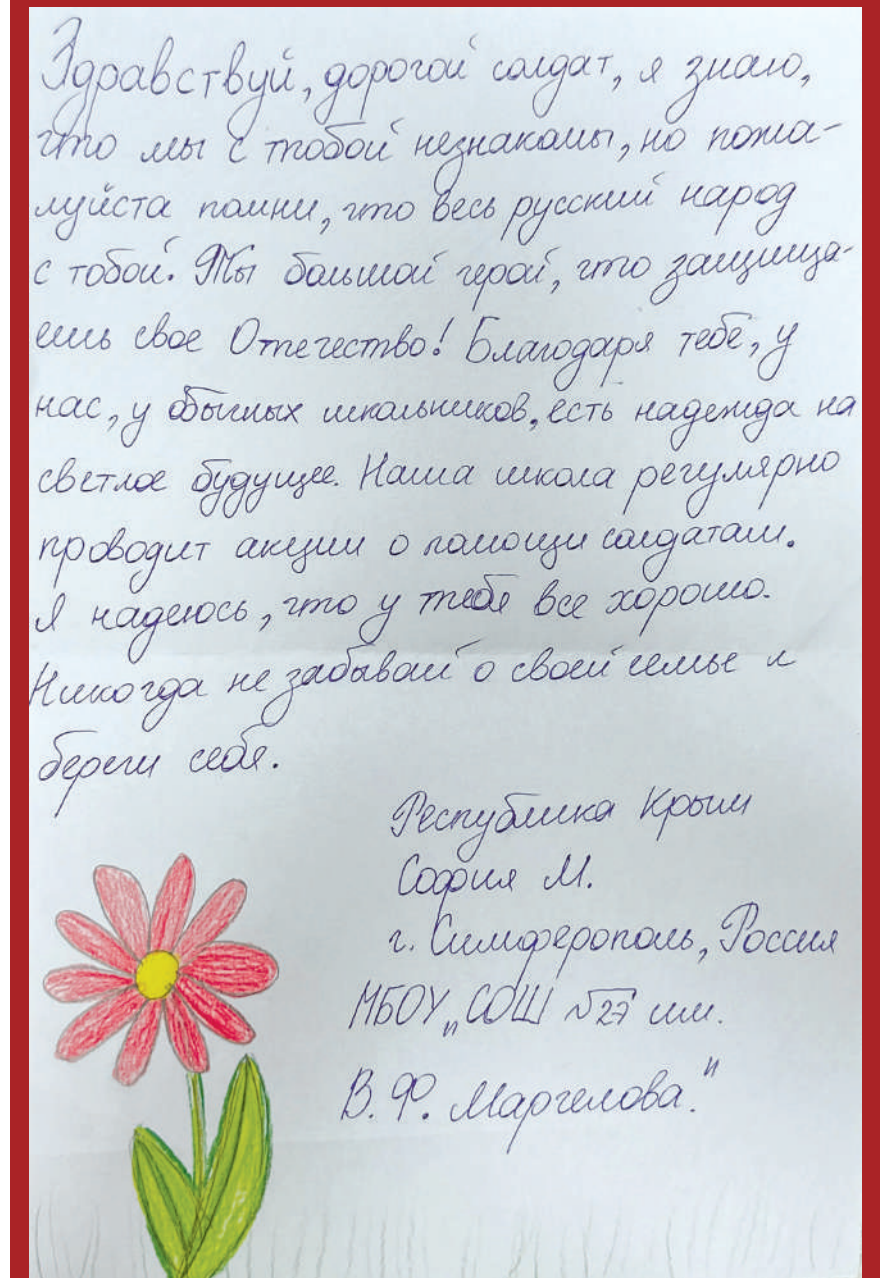 Здравствуй, дорогой солдат, я знаю,
что мы с тобой незнакомы, но пожа-
луйста помни, что весь русский народ
с тобой. Ты большой герой, что защища-
ешь свое Отечество! Благодаря тебе, у
нас, у обычных школьников, есть надежда на
светлое будущее. Наша школа регулярно
проводит акции о помощи солдатам.
Я надеюсь, что у тебя все хорошо.
Никогда не забывай о своей семье и
береги себя.
Республика Крым
София М.
г. Симферополь, Россия
МБОУ „СОШ №27 им.
В. Ф. Маргелова."